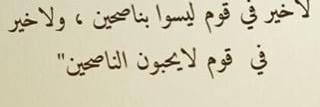 لاخير في قوم ليسوا بناصحين ، ولاخير
في قوم لايحبون الناصحين"